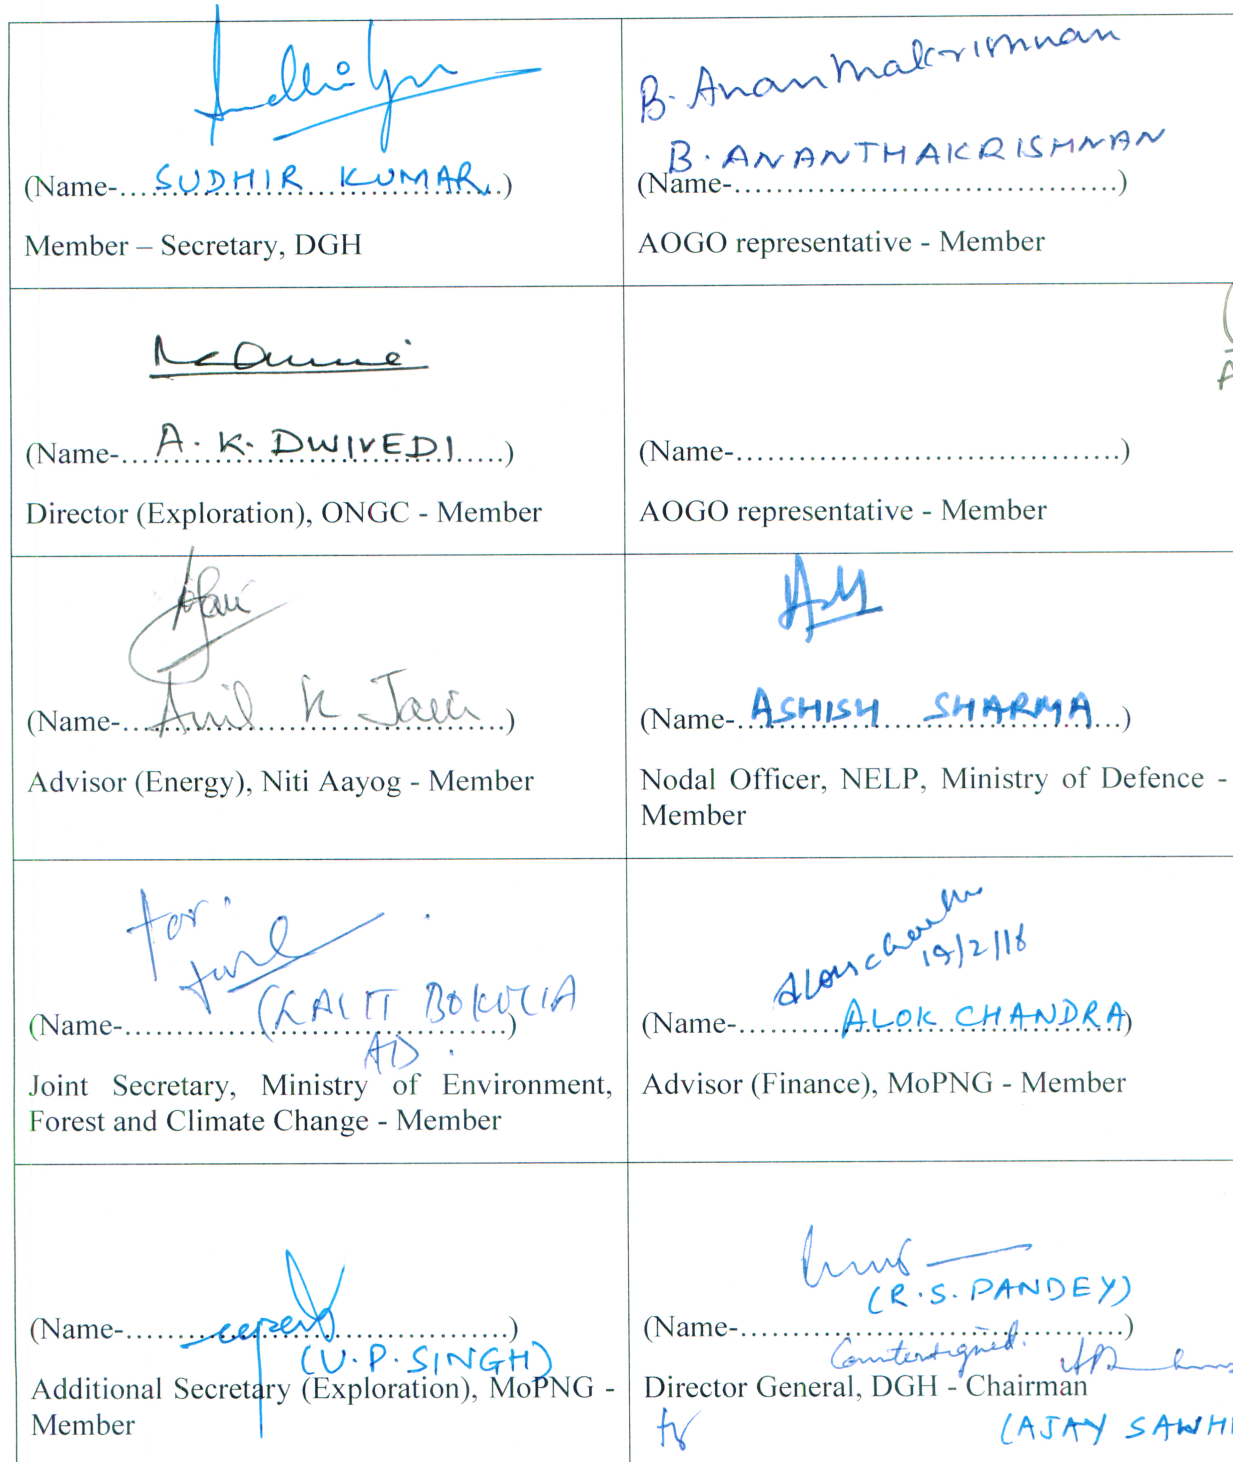 SUDHIR KUMAR
(Name-....................................)
Member – Secretary, DGH
B. Ananthakrishnan
B. ANANTHAKRISHNAN
(Name-....................................)
AOGO representative - Member
A. K. DWIVEDI
(Name-....................................)
Director (Exploration), ONGC - Member
(Name-....................................)
AOGO representative - Member
Anil K Jain
(Name-....................................)
Advisor (Energy), Niti Aayog - Member
ASHISH SHARMA
(Name-....................................)
Nodal Officer, NELP, Ministry of Defence -
Member
for
(LALIT BOKOLIA
(Name-....................................)
AD.
Joint Secretary, Ministry of Environment,
Forest and Climate Change - Member
19/2/18
ALOK CHANDRA
(Name-....................................)
Advisor (Finance), MoPNG - Member
(Name-....................................)
(U.P. SINGH)
Additional Secretary (Exploration), MoPNG -
Member
(R.S. PANDEY)
(Name-....................................)
Countersigned.
Director General, DGH - Chairman
(AJAY SAWH